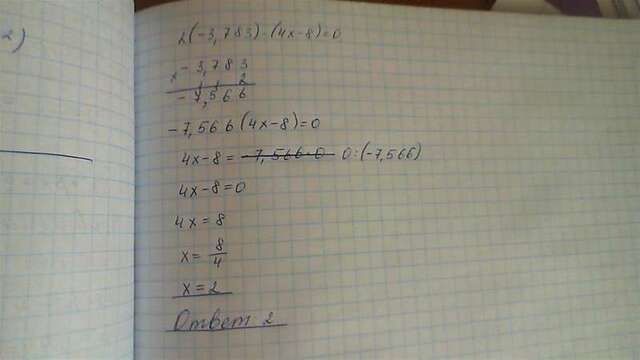 2)
2(-3,783)·(4x-8)=0
x -3,783
2
-7,566
-7,566(4x-8)=0
4x-8= -7,566·0 0:(-7,566)
4x-8=0
4x=8
x= 8/4
x=2
Ответ 2